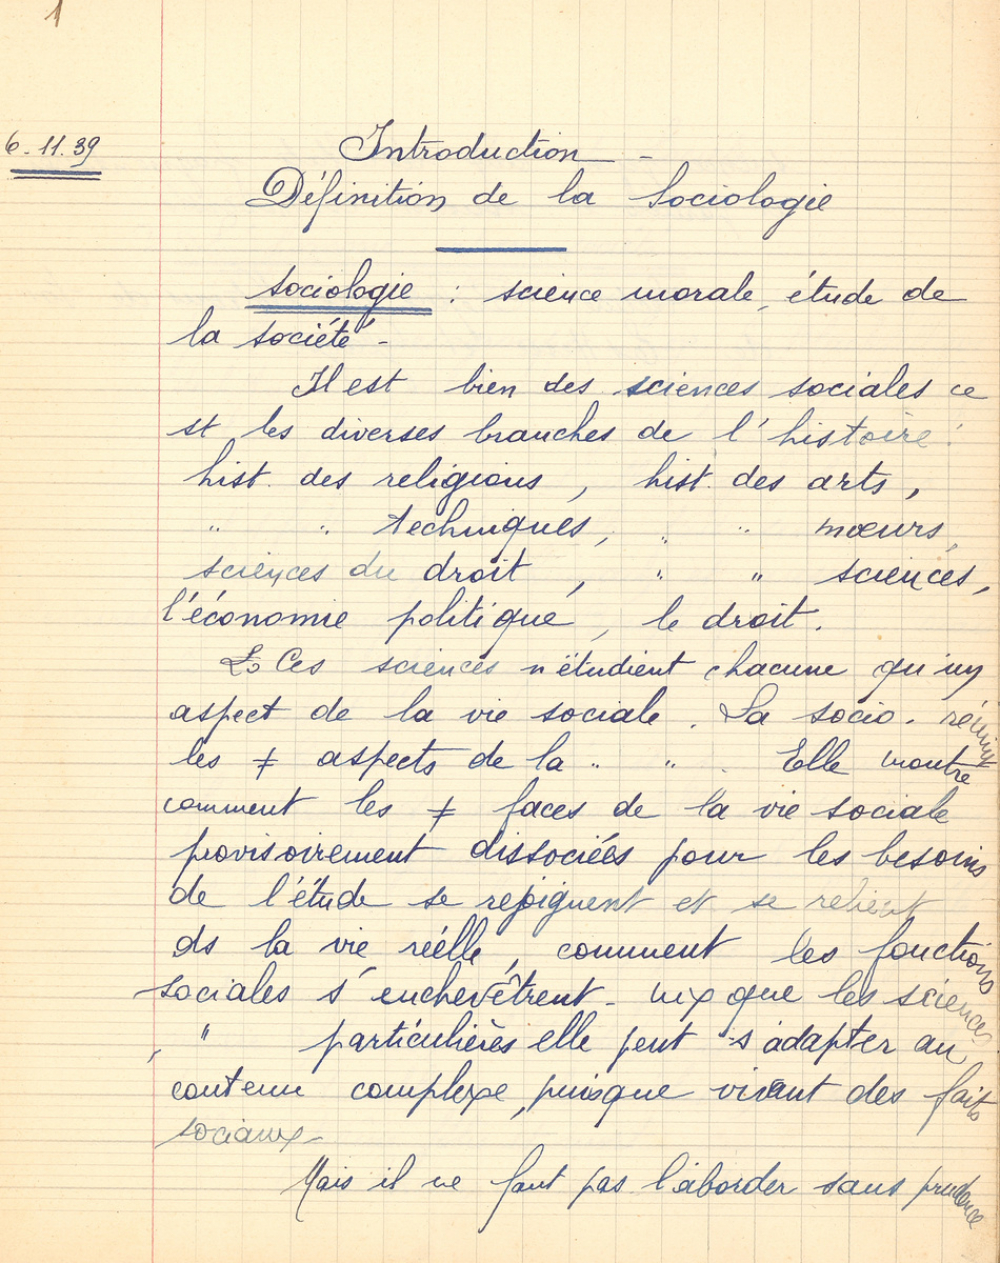 1
6-11.39
Introduction -
Définition de la Sociologie
sociologie : science morale, étude de
la société -
Il est bien des sciences sociales ce
st les diverses branches de l'histoire :
hist. des religions, hist. des arts,
" " techniques, " " mœurs,
sciences du droit, " " sciences,
l'économie politique, le droit.
Ces sciences n'étudient chacune qu'un
aspect de la vie sociale. La socio. réunit
les ≠ aspects de la " ". Elle montre
comment les ≠ faces de la vie sociale
provisoirement dissociées pour les besoins
de l'étude se rejoignent et se relient
ds la vie réelle, comment les fonctions
sociales s'enchevêtrent - que les sciences
" particulières elle peut s'adapter au
contenu complexe, puisque vivant des faits
sociaux -
Mais il ne faut pas l'aborder sans prudence